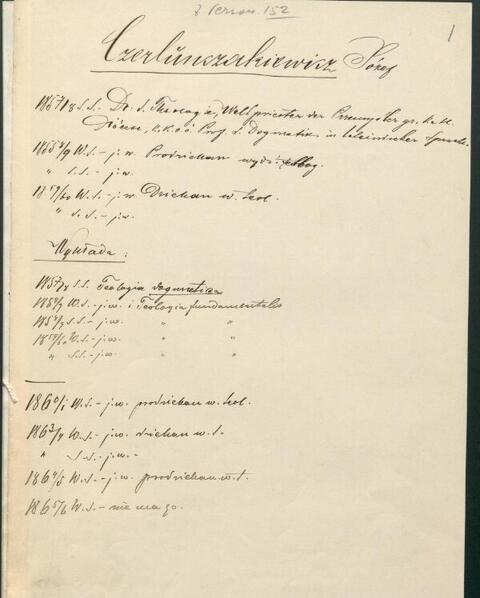 z Person 152
1
Czerlunczakiewicz Józef
1857/8 S.S. Dr. d. Theologie, Weltpriester der Przemysler gr. kath.
Diöcese, k.k. ö.o. Prof. d. Dogmatik in lateinischer Sprache
1858/9 W.S. – j.w. Prodziekan wydz.
" S.S. – j.w.
1859/60 W.S. – j.w. Dziekan w. teol.
" S.S. – j.w.
Wykłada:
1857/8 S.S. Teologia dogmatica
1858/9 W.S. – j.w. i Teologia fundamentalis
1858/9 S.S. – j.w. " "
1859/60 W.S. – j.w. " "
" S.S. – j.w. " "
1860/1 W.S. – j.w. prodziekan w. teol.
1863/4 W.S. – j.w. dziekan w. t.
" S.S. – j.w. –
1864/5 W.S. – j.w. prodziekan w. t.
1865/6 W.S. – nie ma go.